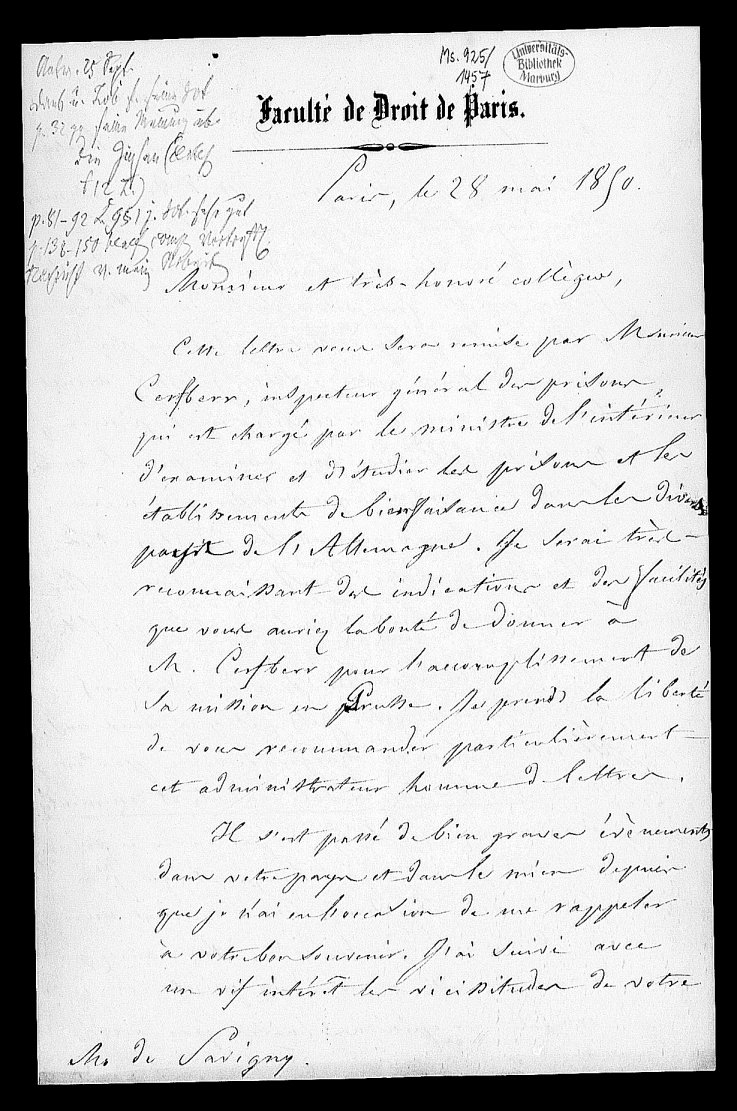 Antw. 25 Sept.
p. 81-92
p. 138-150
Ms. 925/
1457
Universitäts-
Bibliothek
Marburg
Faculté de Droit de Paris.
Paris, le 28 mai 1850.
Monsieur et très-honoré collègue,
Cette lettre vous sera remise par Monsieur
Cerfberr, inspecteur général des prisons,
qui est chargé par le ministre de l'intérieur
d'examiner et d'étudier les prisons et les
établissements de bienfaisance dans les divers
pays de l'Allemagne. Je serai très-
reconnaissant des indications et des facilités
que vous auriez la bonté de donner à
M. Cerfberr pour l'accomplissement de
sa mission en Prusse. Je prends la liberté
de vous recommander particulièrement
cet administrateur homme de lettres.
Il s'est passé de bien graves évènements
dans votre pays et dans le mien depuis
que je n'ai eu l'occasion de me rappeler
à votre bon souvenir. J'ai suivi avec
un vif intérêt les vicissitudes de votre
Mr de Savigny.